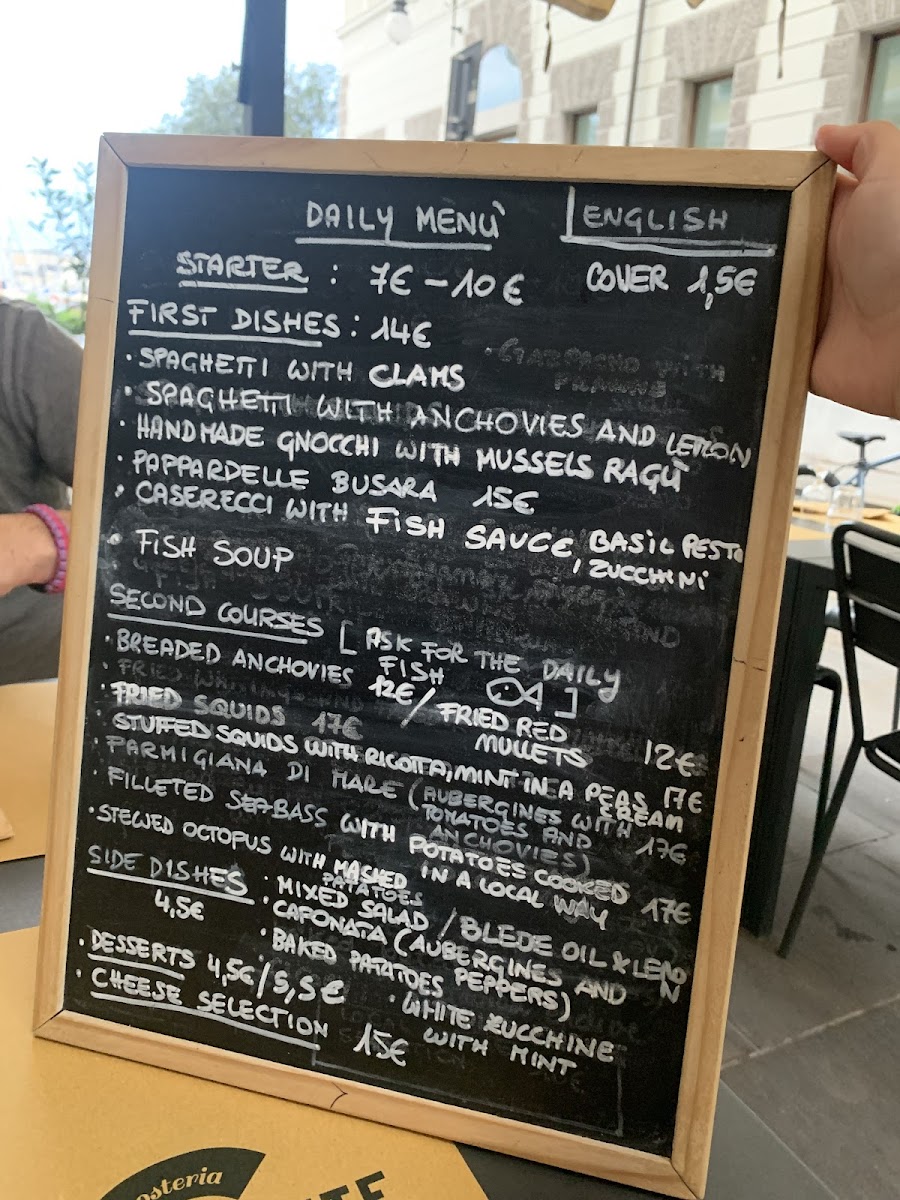 DAILY MENÙ
ENGLISH
STARTER : 7€ - 10€
COVER 1,5€
FIRST DISHES : 14€
· SPAGHETTI WITH CLAMS
· SPAGHETTI WITH ANCHOVIES AND LEMON
· HANDMADE GNOCCHI WITH MUSSELS RAGÙ
· PAPPARDELLE BUSARA 15€
· CASERECCI WITH FISH SAUCE, BASIL PESTO
, ZUCCHINI
· FISH SOUP
SECOND COURSES [ ASK FOR THE DAILY
FISH ]
· BREADED ANCHOVIES 12€ / FRIED RED
MULLETS 12€
· FRIED SQUIDS 17€
· STUFFED SQUIDS WITH RICOTTA, MINT IN A PEAS CREAM 17€
· PARMIGIANA DI MARE (AUBERGINES WITH
TOMATOES AND
ANCHOVIES) 17€
· FILLETED SEABASS WITH POTATOES COOKED
IN A LOCAL WAY 17€
· STEWED OCTOPUS WITH MASHED
PATATOES
SIDE DISHES
4,5€
· MIXED SALAD / BLEDE OIL & LEMON
· CAPONATA (AUBERGINES AND
PEPPERS)
· BAKED PATATOES
· WHITE ZUCCHINE
WITH MINT
· DESSERTS 4,5€/5,5€
· CHEESE SELECTION 15€
osteria